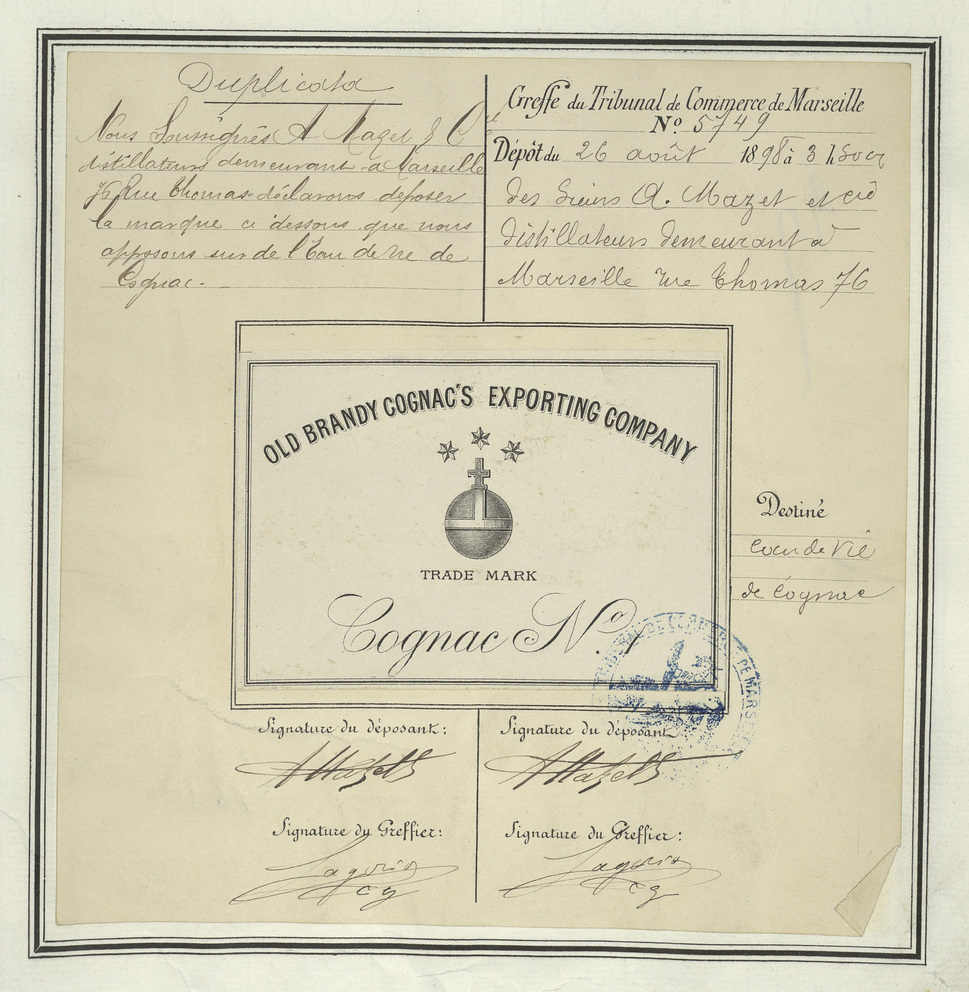 Duplicata
Nous Soussignés A Mazet & Cie
distillateurs demeurant à Marseille
76 Rue Thomas déclarons déposer
la marque ci dessous que nous
apposons sur de l'Eau de Vie de
Cognac.
Greffe du Tribunal de Commerce de Marseille
No. 5749
Dépôt du 26 août 1898 à 3 h soir
des Sieurs A. Mazet et cie
distillateurs demeurant à
Marseille rue Thomas 76
OLD BRANDY COGNAC'S EXPORTING COMPANY
TRADE MARK
Cognac No. 1
Destiné
eau de Vie
de Cognac
TRIBUNAL DE COMMERCE DE MARSEILLE
Signature du déposant:
AMazet
Signature du déposant
AMazet
Signature du Greffier:
Signature du Greffier: